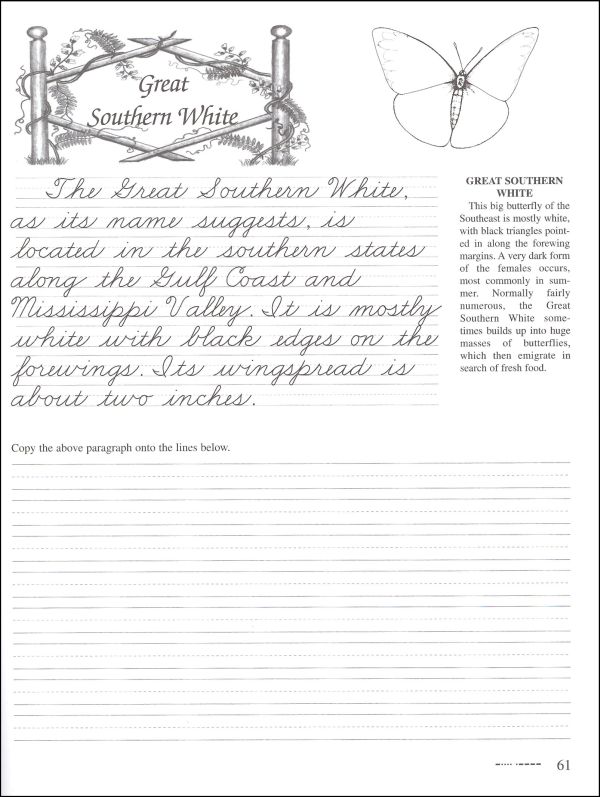 Great
Southern White
The Great Southern White,
as its name suggests, is
located in the southern states
along the Gulf Coast and
Mississippi Valley. It is mostly
white with black edges on the
forewings. Its wingspread is
about two inches.
GREAT SOUTHERN
WHITE
This big butterfly of the
Southeast is mostly white,
with black triangles point-
ed in along the forewing
margins. A very dark form
of the females occurs,
most commonly in sum-
mer. Normally fairly
numerous, the Great
Southern White some-
times builds up into huge
masses of butterflies,
which then emigrate in
search of fresh food.
Copy the above paragraph onto the lines below.
61